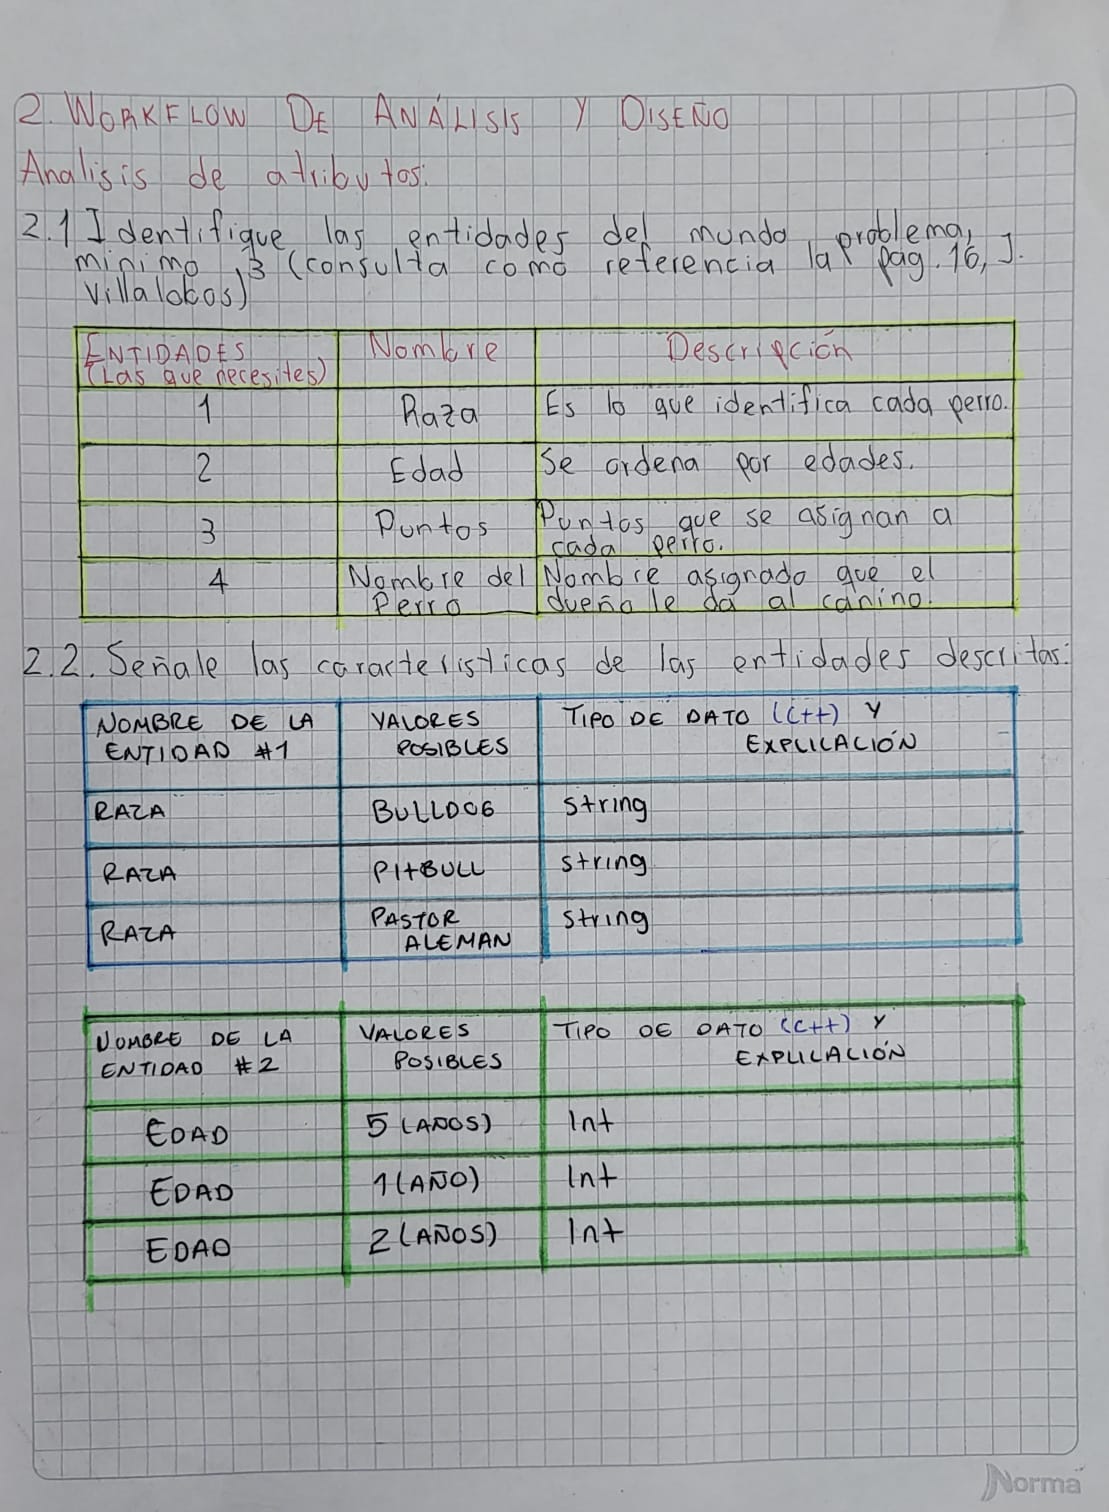 2. WORKFLOW DE ANÁLISIS Y DISEÑO
Analisis de atributos:
2.1 Identifique las entidades del mundo problema,
minimo 3 (consulta como referencia la pag. 16, J.
Villalobos)
ENTIDADES
(Las que necesites)
Nombre
Descripción
1
Raza
Es lo que identifica cada perro.
2
Edad
Se ordena por edades.
3
Puntos
Puntos que se asignan a
cada perro.
4
Nombre del
Perro
Nombre asignado que el
dueño le da al canino.
2.2. Señale las caracteristicas de las entidades descritas:
NOMBRE DE LA
ENTIDAD #1
VALORES
POSIBLES
TIPO DE DATO (C++) Y
EXPLICACIÓN
RAZA
BULLDOG
String
RAZA
PITBULL
String
RAZA
PASTOR
ALEMAN
String
NOMBRE DE LA
ENTIDAD #2
VALORES
POSIBLES
TIPO DE DATO (C++) Y
EXPLICACIÓN
EDAD
5 (AÑOS)
Int
EDAD
1 (AÑO)
Int
EDAD
2 (AÑOS)
Int
Norma